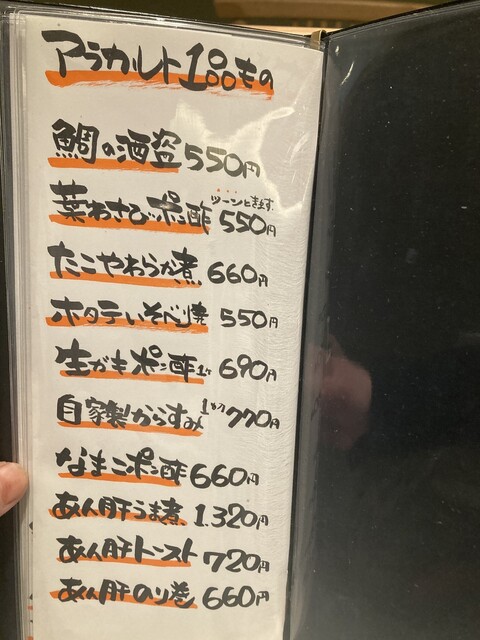 アラカルト1品もの
鯛の酒盗 550円
ツーンときます
葉わさびポン酢 550円
たこやわらか煮 660円
ホタテいそべ焼 550円
生ガキポン酢 1ケ 690円
自家製からすみ 770円
なまこポン酢 660円
あん肝うま煮 1.320円
あん肝トースト 720円
あん肝のり巻 660円